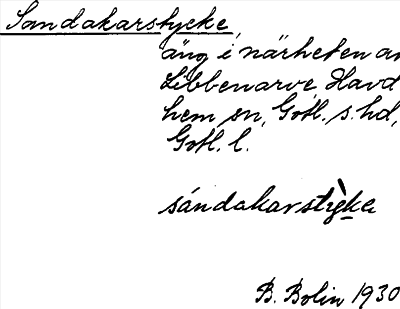 Sandakarstycke,
äng i närheten av
Libbenarve, Havd
hem sn, Gotl. s. hd,
Gotl. l.
sándakarstỳke
B. Bolin 1930